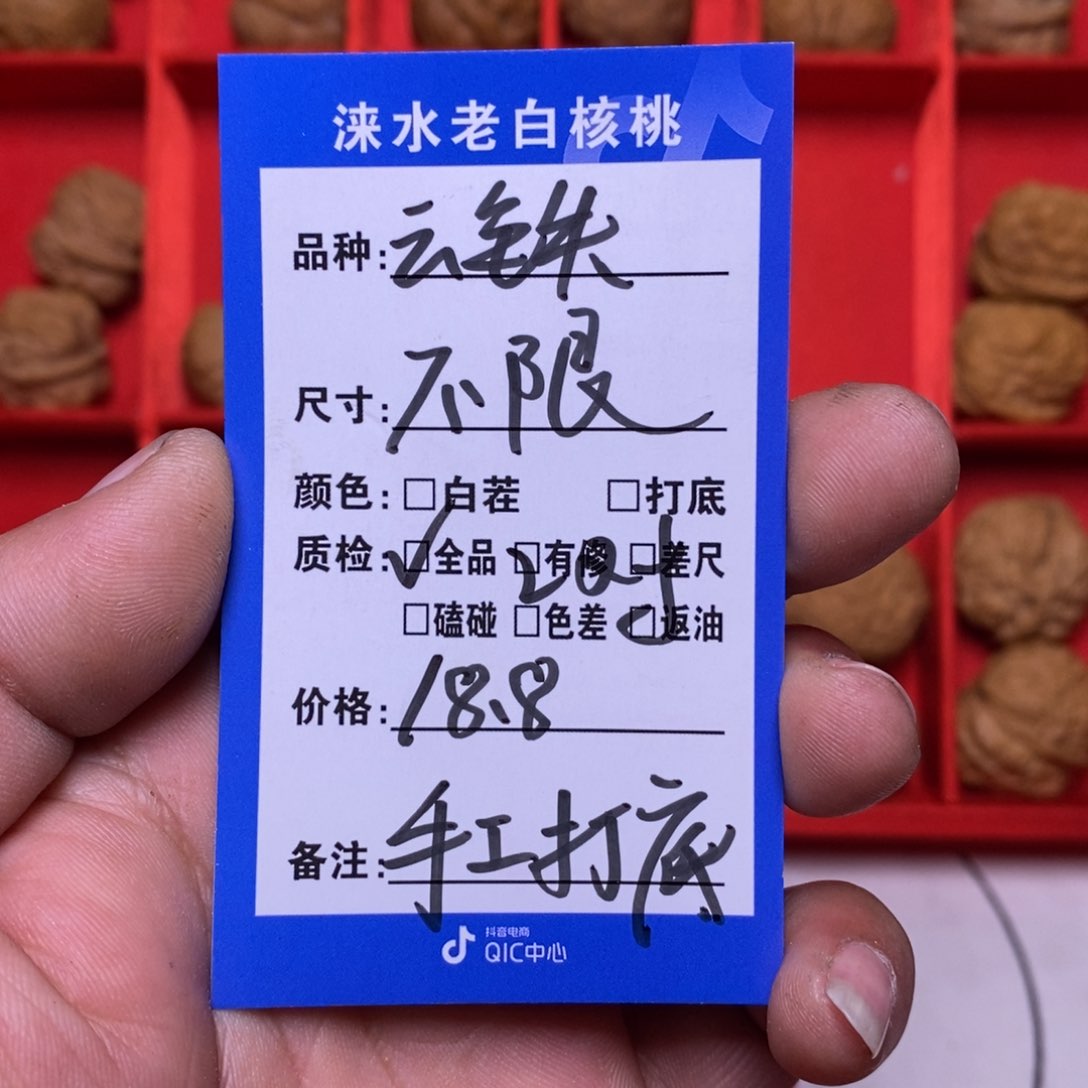 涞水老白核桃
品种:云铁
尺寸:不限
颜色:□白茬 □打底
质检:✓□全品 □有修 □差尺
20对
□磕碰 □色差 □返油
价格:18.8
备注:手工打底
抖音电商
QIC中心